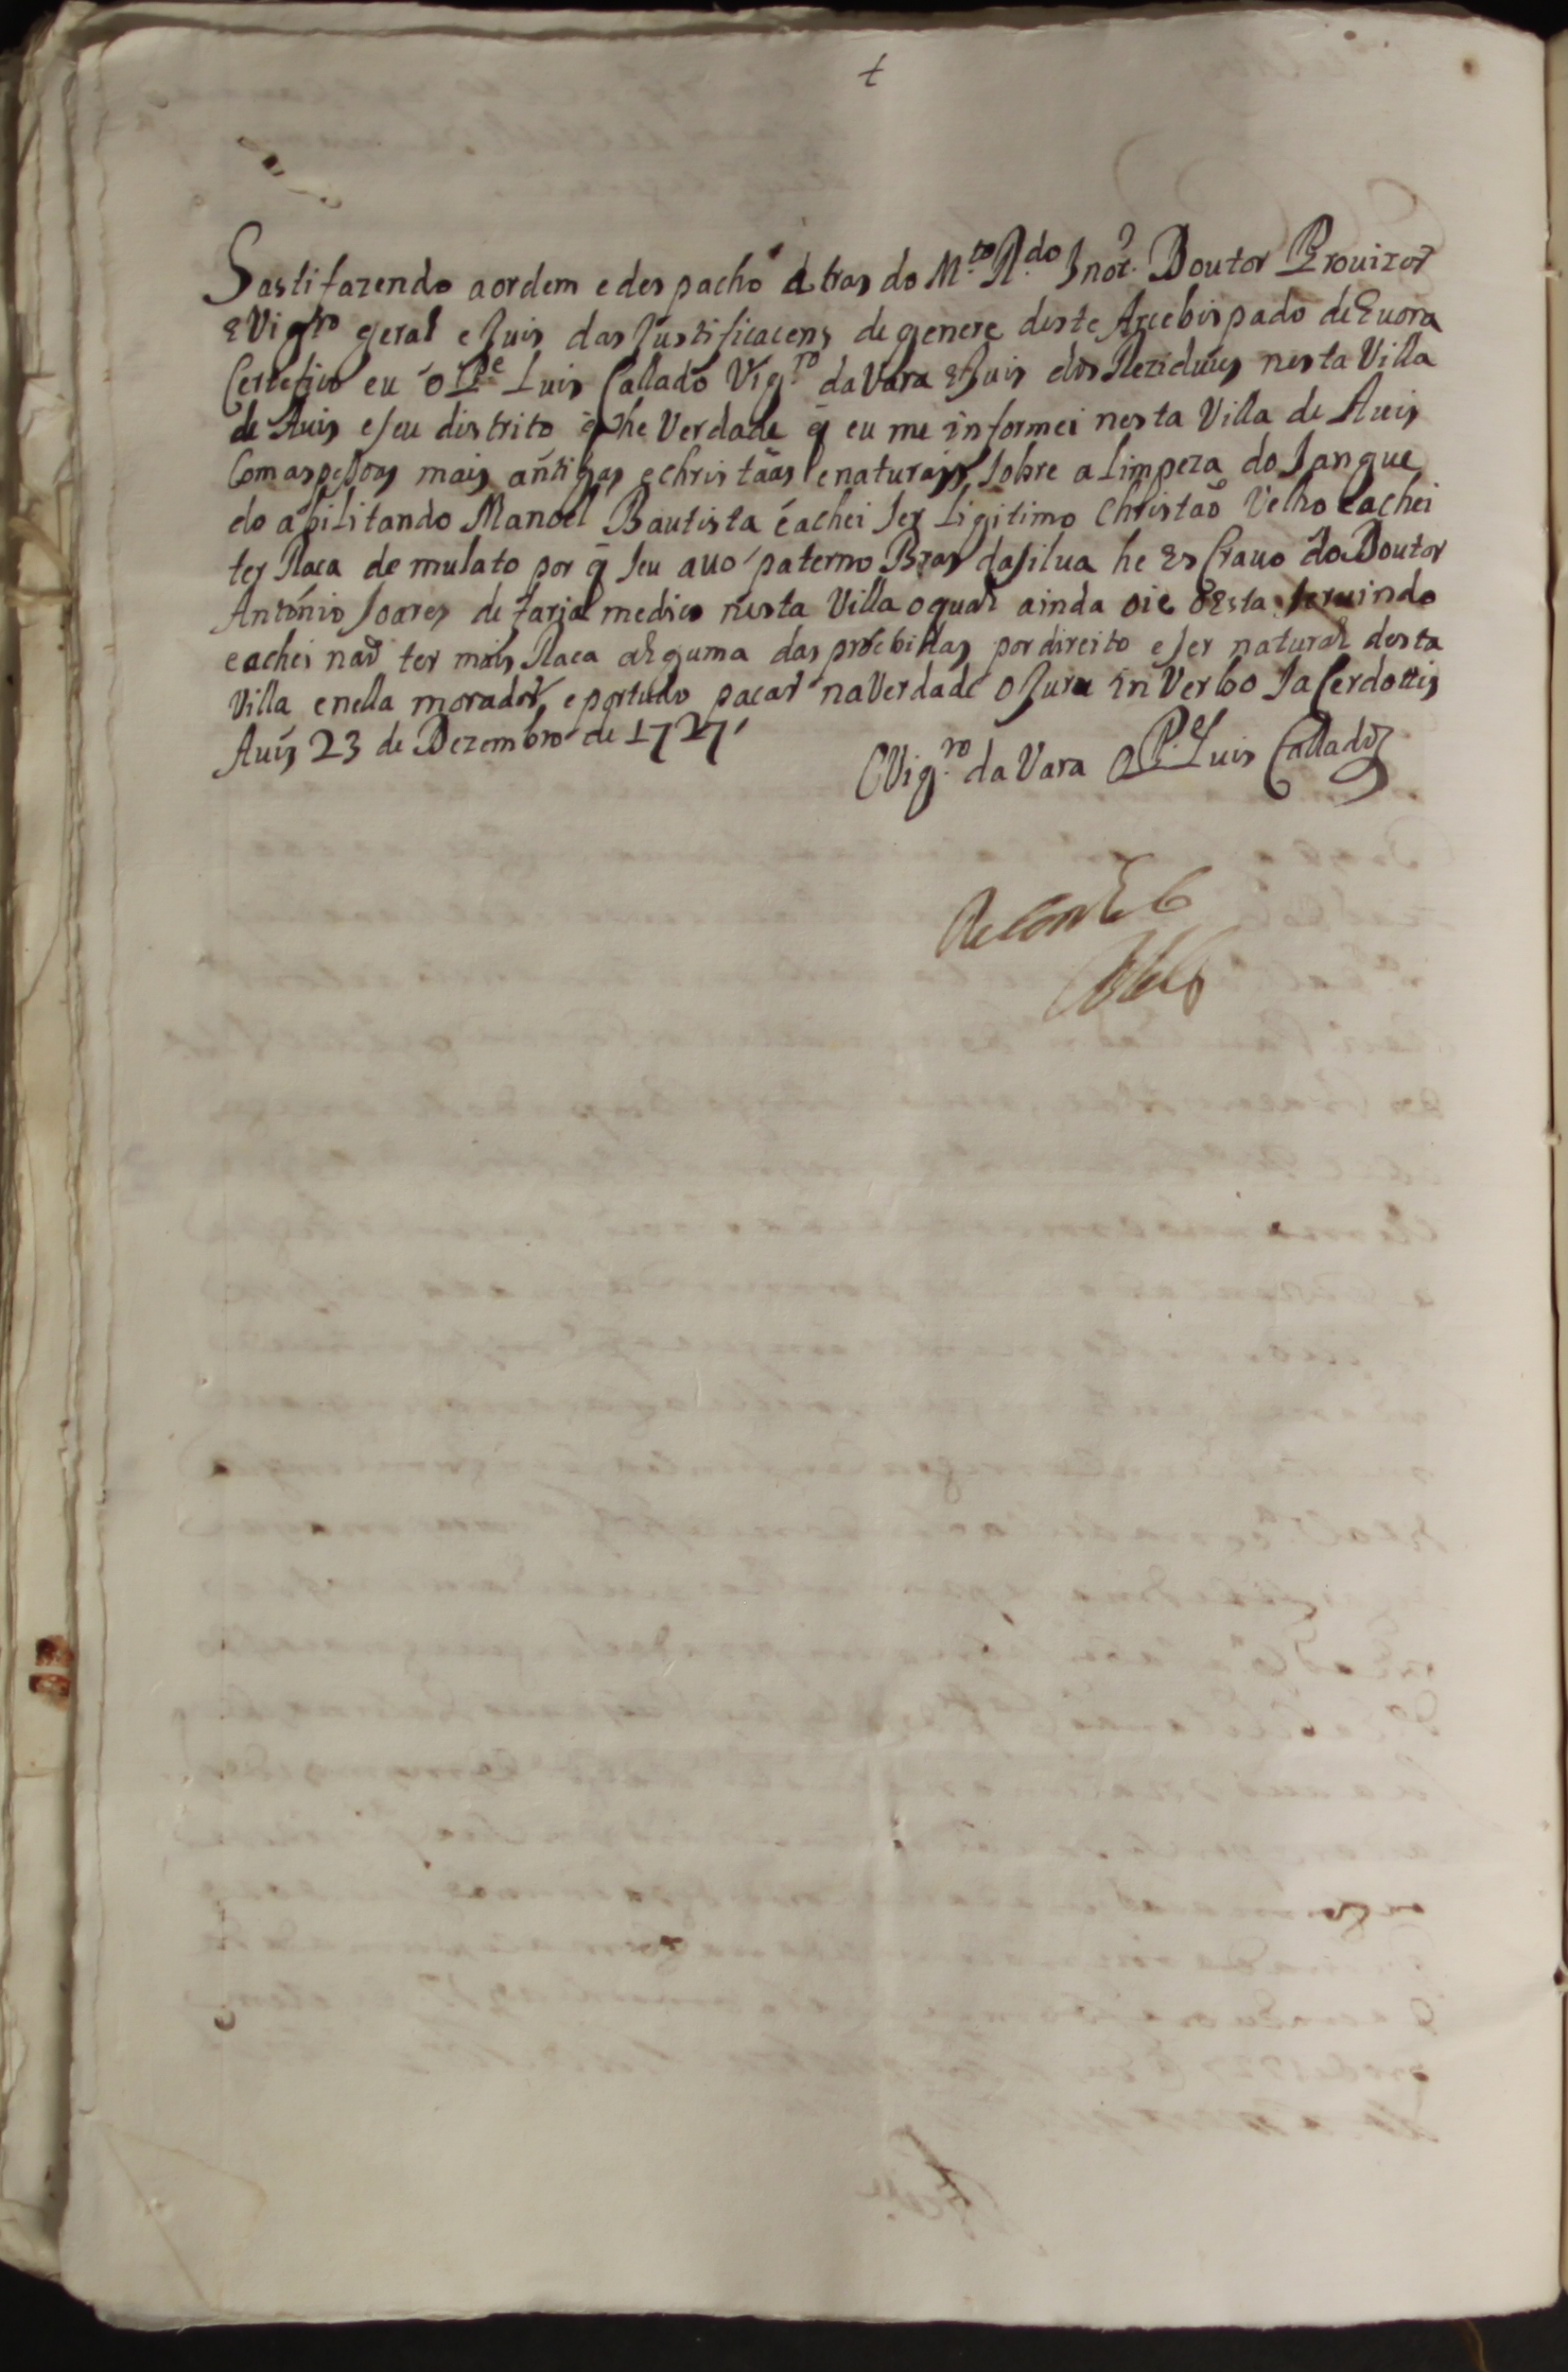 Sastifazendo a ordem e despacho atras do M.to R.do Snor. Doutor Prouizor
e Vigro geral e Juis das Justificacens de genere deste Arcebispado de Euora
Certefico eu o Pe Luis Callado Vig.ro da Vara e Juis dos Reziduus nesta Villa
de Auis e seu distrito q̃ he Verdade q̃ eu me informei nesta Villa de Auis
Com as pessoas mais antigas e christãas e naturais, sobre a limpeza do sangue
do abilitando Manoel Bautista e achei ser Ligitimo Christaõ Velho e achei
ter Raca de mulato por q̃ seu auo paterno Bras da silua he escrauo do Doutor
António Soares de faria medico nesta Villa o qual ainda oie o esta seruindo
e achei naõ ter mais Raca alguma das proebidas por direito e ser natural desta
Villa e nella morador, e por tudo pacar na Verdade o Juru in Verbo Sacerdottis
Auis 23 de Dezembro de 1727
O Vig.ro da Vara O P.e Luis Callado